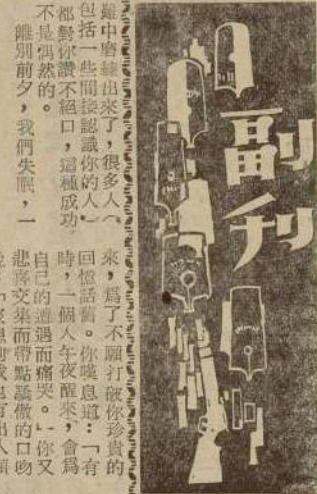 副刊
難中磨練出來了，很多人（
包括一些間接認識你的人）
都對你讚不絕口，這種成功
不是偶然的。
離別前夕，我們失眠，一
來，爲了不願打破你珍貴的
回憶話舊。你嘆息道：「有
時，一個人午夜醒來，會爲
自己的遭遇而痛哭。」你又
悲喜交集而帶點驕傲的口吻